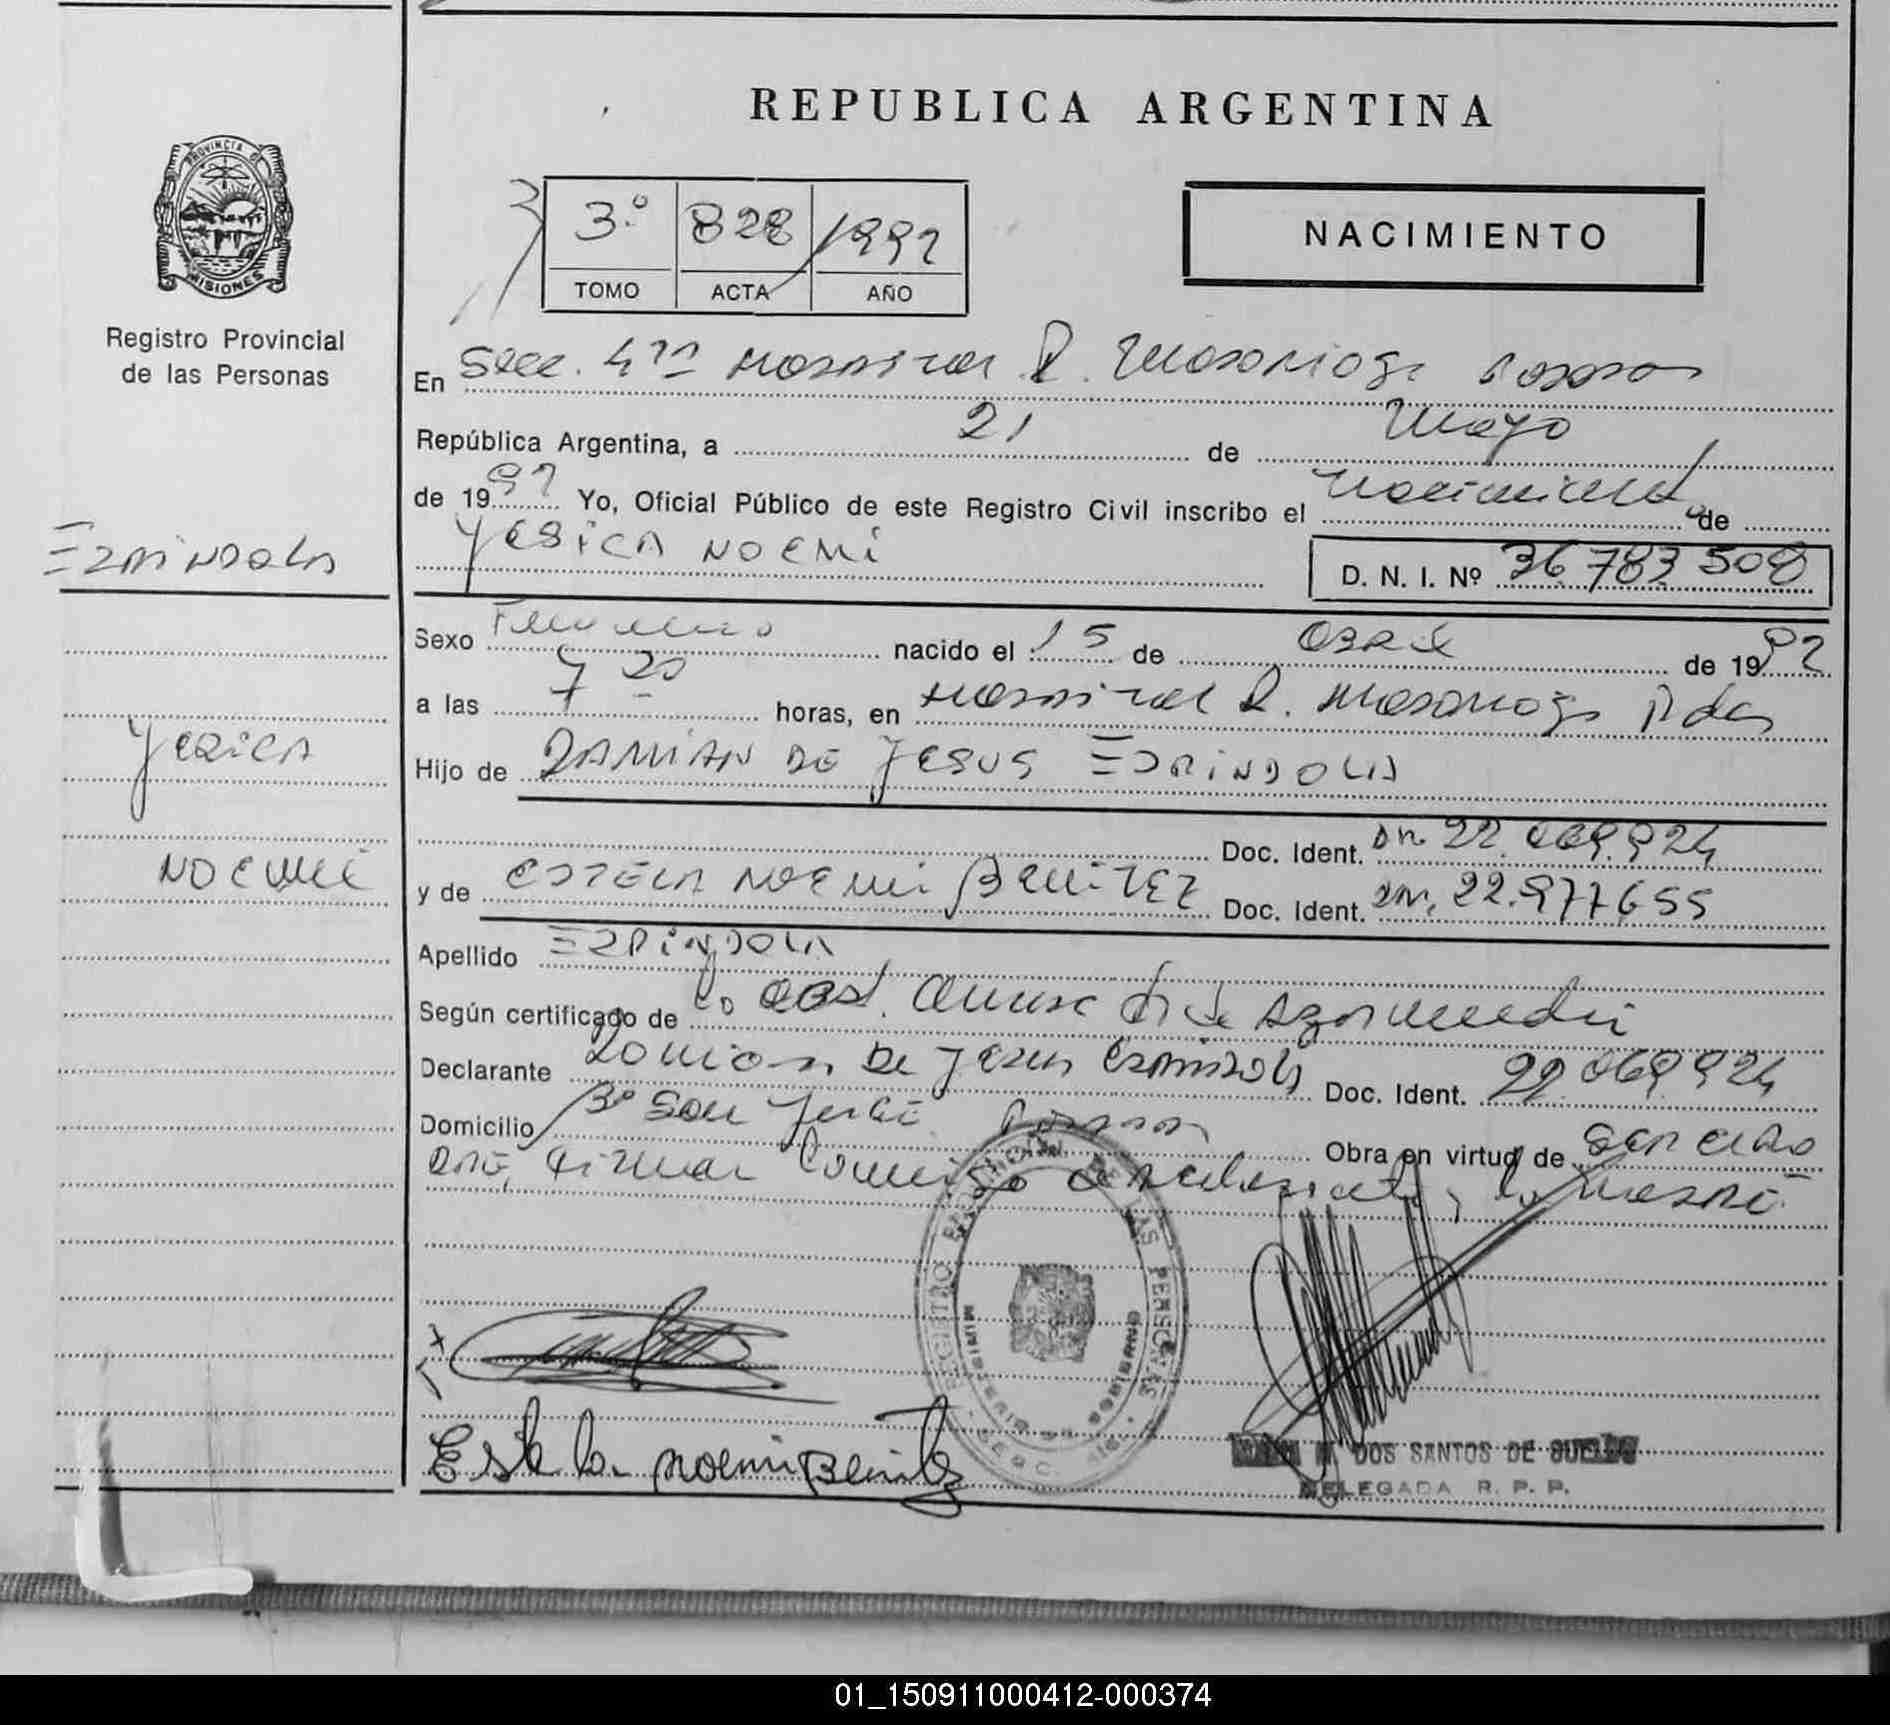 REPUBLICA ARGENTINA
PROVINCIA DE
MISIONES
Registro Provincial
de las Personas
3º 828 1992
TOMO ACTA AÑO
NACIMIENTO
En Secc. 4ta Hospital R. Madariaga Posadas
República Argentina, a 21 de Mayo
de 1992 Yo, Oficial Público de este Registro Civil inscribo el nacimiento de
YESICA NOEMI
D. N. I. Nº 36.783.508
Espindola
Yesica
Noemi
Sexo Femenino nacido el 15 de Abril de 1992
a las 7 20 horas, en Hospital R. Madariaga Pdas
Hijo de DAMIAN DE JESUS ESPINDOLA
Doc. Ident. DNI 22.069.924
y de ESTELA NOEMI BENITEZ Doc. Ident. DNI 22.977.655
Apellido ESPINDOLA
Según certificado de la Obst. de
Declarante Damian De Jesus Espindola Doc. Ident. 22.069.924
Domicilio Bº San Jorge Posadas Obra en virtud de ser el Pa
dre, firman conmigo el declarante y la madre.
REGISTRO PROVINCIAL DE LAS PERSONAS
MINISTERIO DE GOBIERNO
Estela noemi Benitez
M. DOS SANTOS DE
DELEGADA R. P. P.
01_150911000412-000374